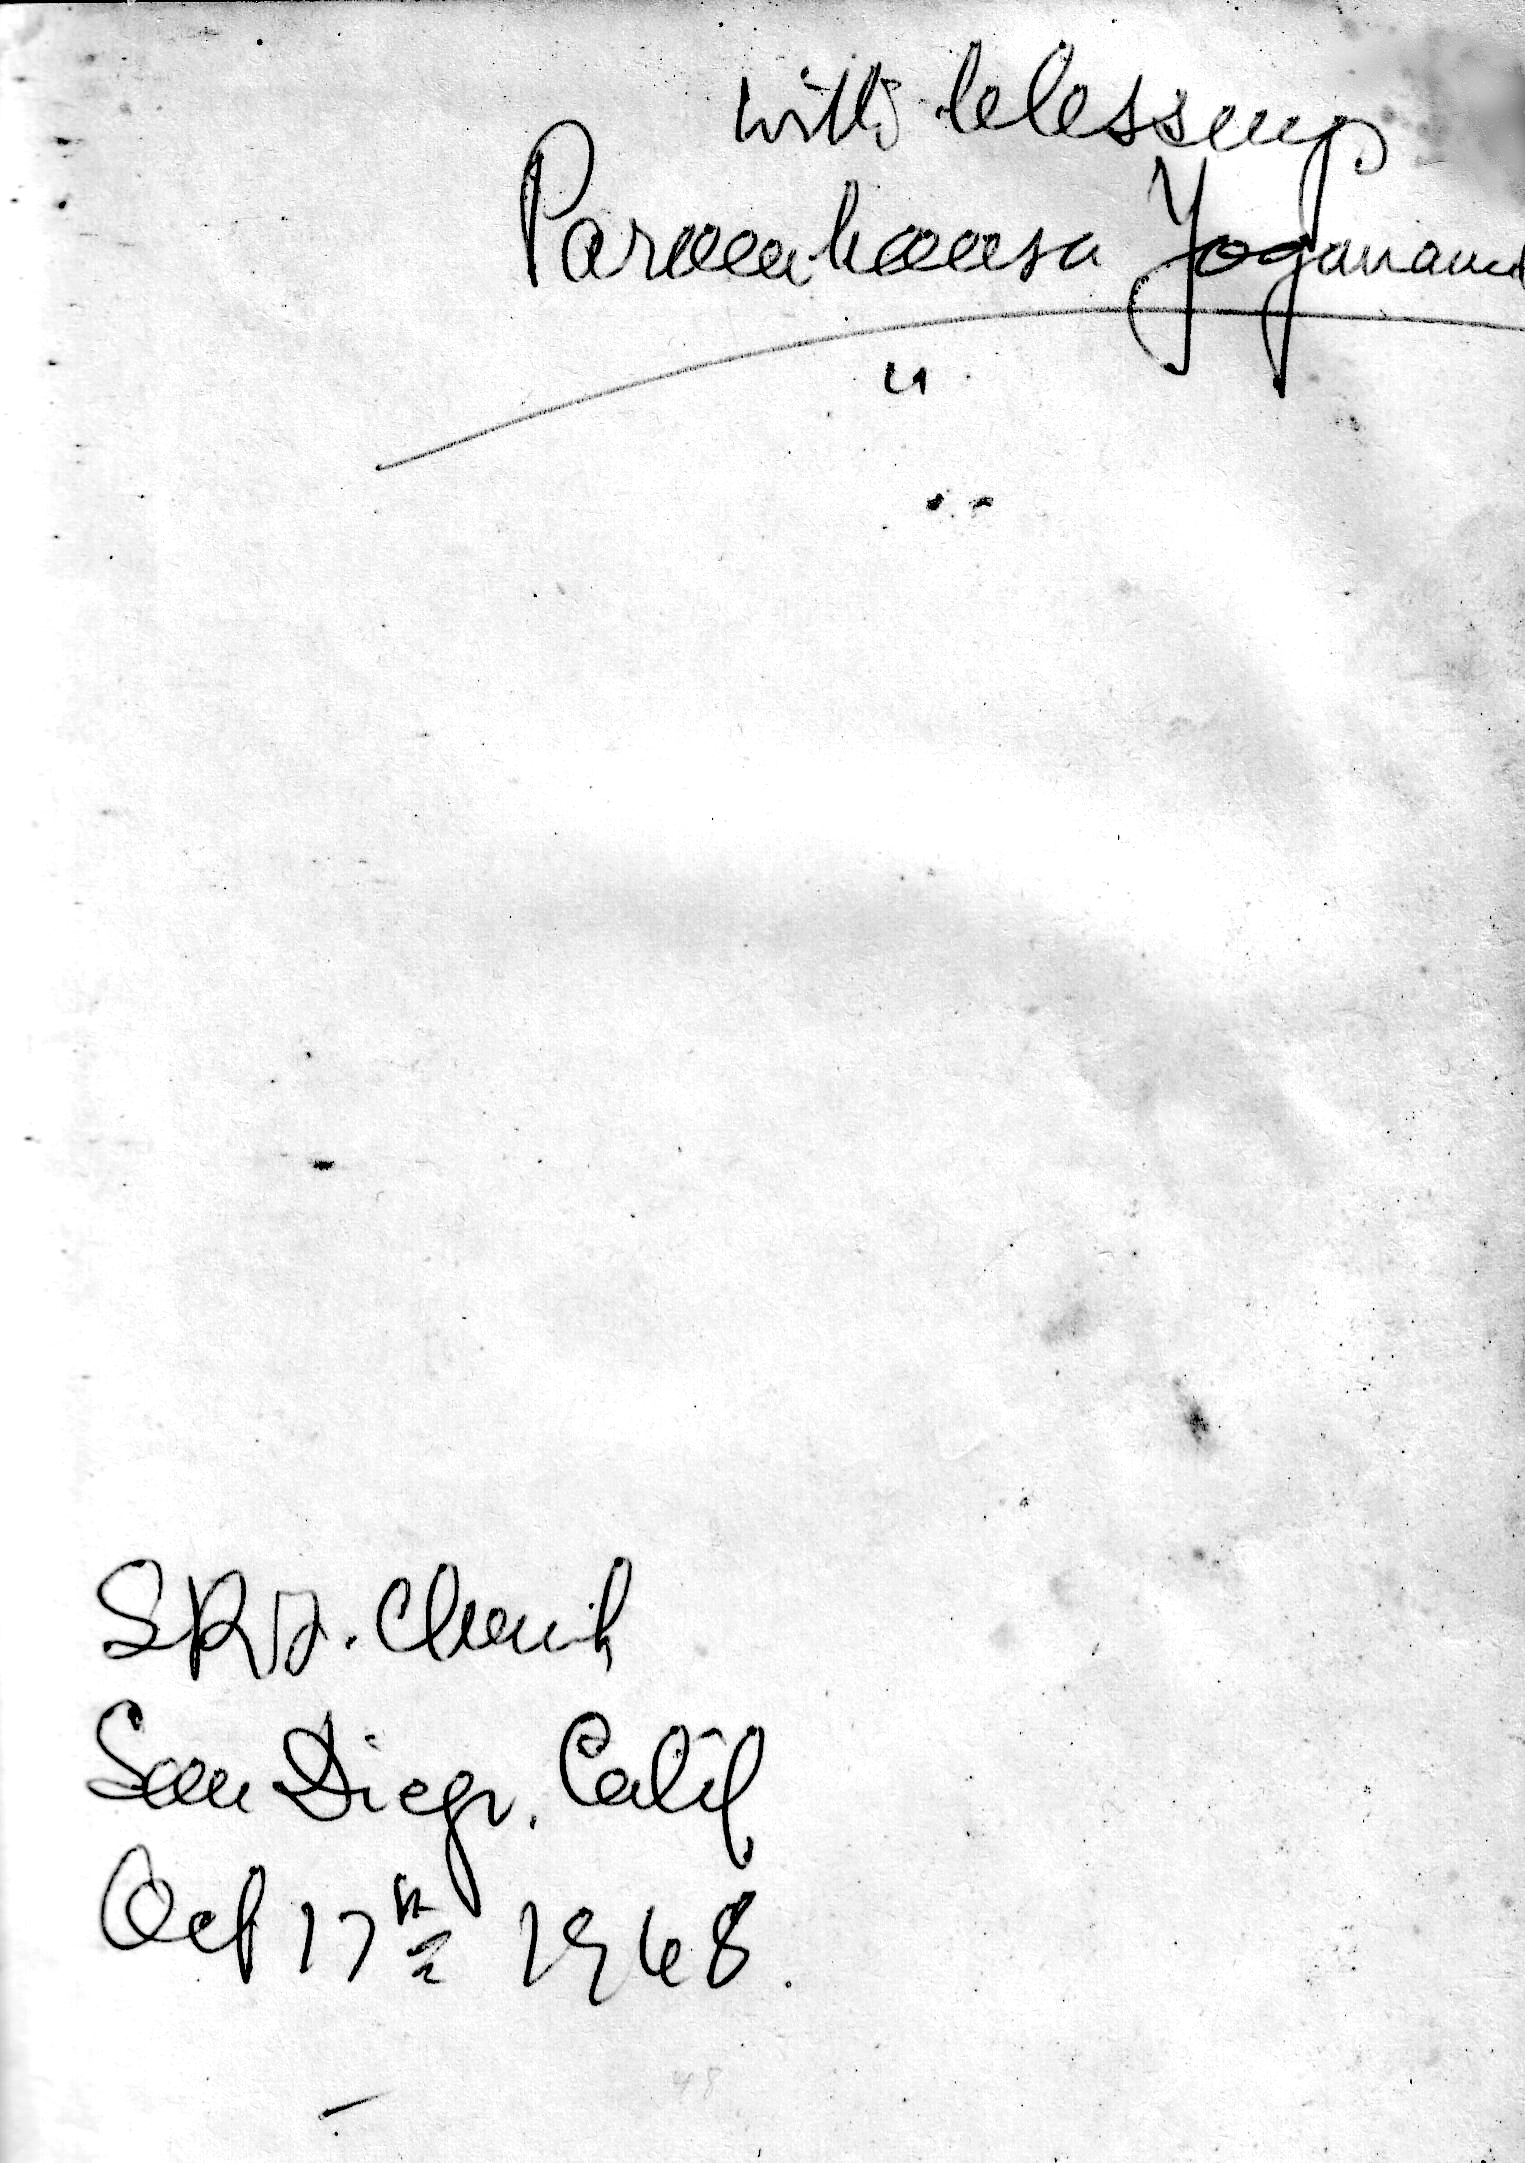 with blessings
Paramhansa Yoganand
SRF. Church
San Diego, Calif
Oct 17th 1948.
48